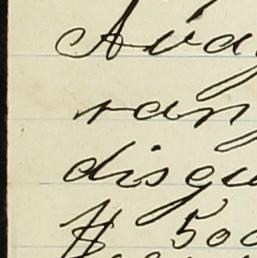 Ava
ran
disgu
$ 500